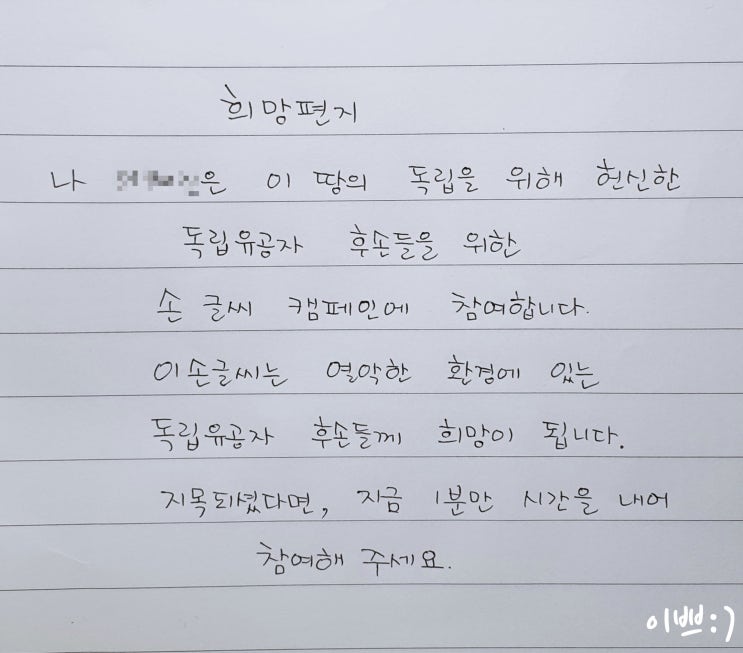 희망편지
나 은 이 땅의 독립을 위해 헌신한
독립유공자 후손들을 위한
손 글씨 캠페인에 참여합니다.
이손글씨는 열악한 환경에 있는
독립유공자 후손들께 희망이 됩니다.
지목되셨다면, 지금 1분만 시간을 내어
참여해 주세요.
이쁘:)